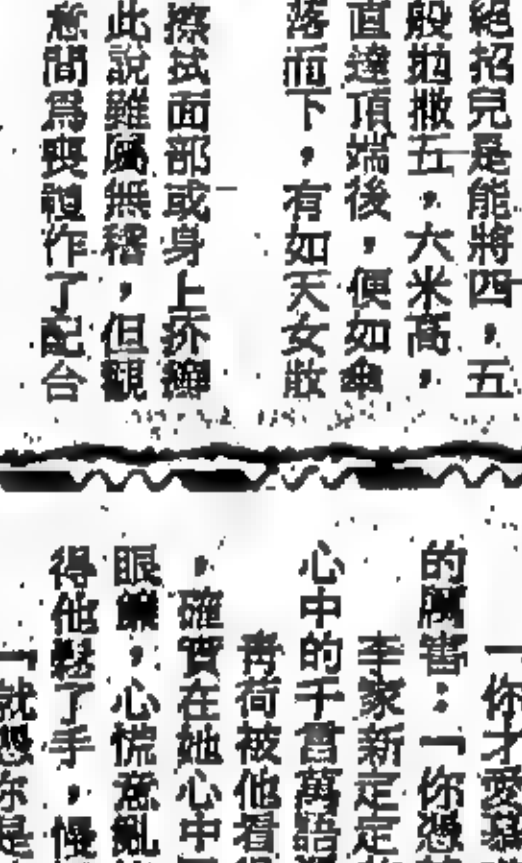 絕招兒是能將四,五
般拋撒五,六米高,
直達頂端後,便如傘
落而下,有如天女散
擦拭面部或身上
此說雖屬無稽,但觀
意間爲喪禮作了配台
「你才愛
的厲害:「你憑
李家新定定
心中的千言萬語
青荷被他看
,確實在她心中
眼簾,心慌意亂
得他鬆了手,慢
「就憑你是